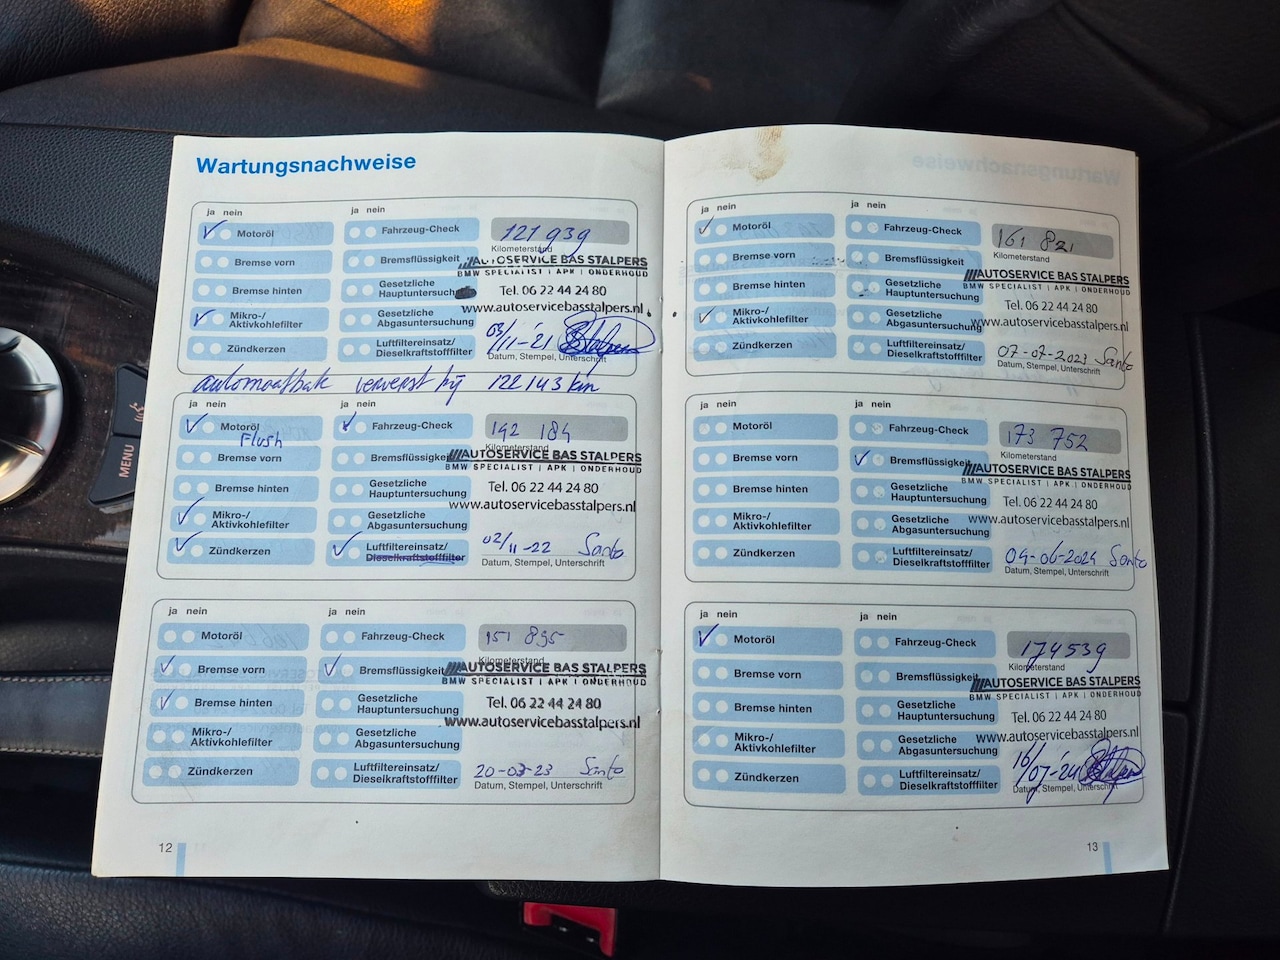 MENU
Wartungsnachweise
ja nein
ja nein
Motoröl
Fahrzeug-Check
121 939
Kilometerstand
Bremse vorn
Bremsflüssigkeit
AUTOSERVICE BAS STALPERS
BMW SPECIALIST | APK | ONDERHOUD
Bremse hinten
Gesetzliche
Hauptuntersuchung
Tel. 06 22 44 24 80
www.autoservicebasstalpers.nl
Mikro-/
Aktivkohlefilter
Gesetzliche
Abgasuntersuchung
03/11-'21
Zündkerzen
Luftfiltereinsatz/
Dieselkraftstofffilter
Datum, Stempel, Unterschrift
automaatbak ververst bij 122143 km
ja nein
ja nein
Motoröl
Flush
Fahrzeug-Check
142 184
Kilometerstand
Bremse vorn
Bremsflüssigkeit
AUTOSERVICE BAS STALPERS
BMW SPECIALIST | APK | ONDERHOUD
Bremse hinten
Gesetzliche
Hauptuntersuchung
Tel. 06 22 44 24 80
www.autoservicebasstalpers.nl
Mikro-/
Aktivkohlefilter
Gesetzliche
Abgasuntersuchung
Zündkerzen
Luftfiltereinsatz/
Dieselkraftstofffilter
02/11-22 Santo
Datum, Stempel, Unterschrift
ja nein
ja nein
Motoröl
Fahrzeug-Check
151 895
Kilometerstand
Bremse vorn
Bremsflüssigkeit
AUTOSERVICE BAS STALPERS
BMW SPECIALIST | APK | ONDERHOUD
Bremse hinten
Gesetzliche
Hauptuntersuchung
Tel. 06 22 44 24 80
www.autoservicebasstalpers.nl
Mikro-/
Aktivkohlefilter
Gesetzliche
Abgasuntersuchung
Zündkerzen
Luftfiltereinsatz/
Dieselkraftstofffilter
20-03-23 Santo
Datum, Stempel, Unterschrift
12
ja nein
ja nein
Motoröl
Fahrzeug-Check
161 821
Kilometerstand
Bremse vorn
Bremsflüssigkeit
AUTOSERVICE BAS STALPERS
BMW SPECIALIST | APK | ONDERHOUD
Bremse hinten
Gesetzliche
Hauptuntersuchung
Tel. 06 22 44 24 80
www.autoservicebasstalpers.nl
Mikro-/
Aktivkohlefilter
Gesetzliche
Abgasuntersuchung
Zündkerzen
Luftfiltereinsatz/
Dieselkraftstofffilter
07-07-2023 Santo
Datum, Stempel, Unterschrift
ja nein
ja nein
Motoröl
Fahrzeug-Check
173 752
Kilometerstand
Bremse vorn
Bremsflüssigkeit
AUTOSERVICE BAS STALPERS
BMW SPECIALIST | APK | ONDERHOUD
Bremse hinten
Gesetzliche
Hauptuntersuchung
Tel. 06 22 44 24 80
www.autoservicebasstalpers.nl
Mikro-/
Aktivkohlefilter
Gesetzliche
Abgasuntersuchung
Zündkerzen
Luftfiltereinsatz/
Dieselkraftstofffilter
04-06-2024 Santo
Datum, Stempel, Unterschrift
ja nein
ja nein
Motoröl
Fahrzeug-Check
174539
Kilometerstand
Bremse vorn
Bremsflüssigkeit
AUTOSERVICE BAS STALPERS
BMW SPECIALIST | APK | ONDERHOUD
Bremse hinten
Gesetzliche
Hauptuntersuchung
Tel. 06 22 44 24 80
www.autoservicebasstalpers.nl
Mikro-/
Aktivkohlefilter
Gesetzliche
Abgasuntersuchung
16/07-'24
Zündkerzen
Luftfiltereinsatz/
Dieselkraftstofffilter
Datum, Stempel, Unterschrift
13